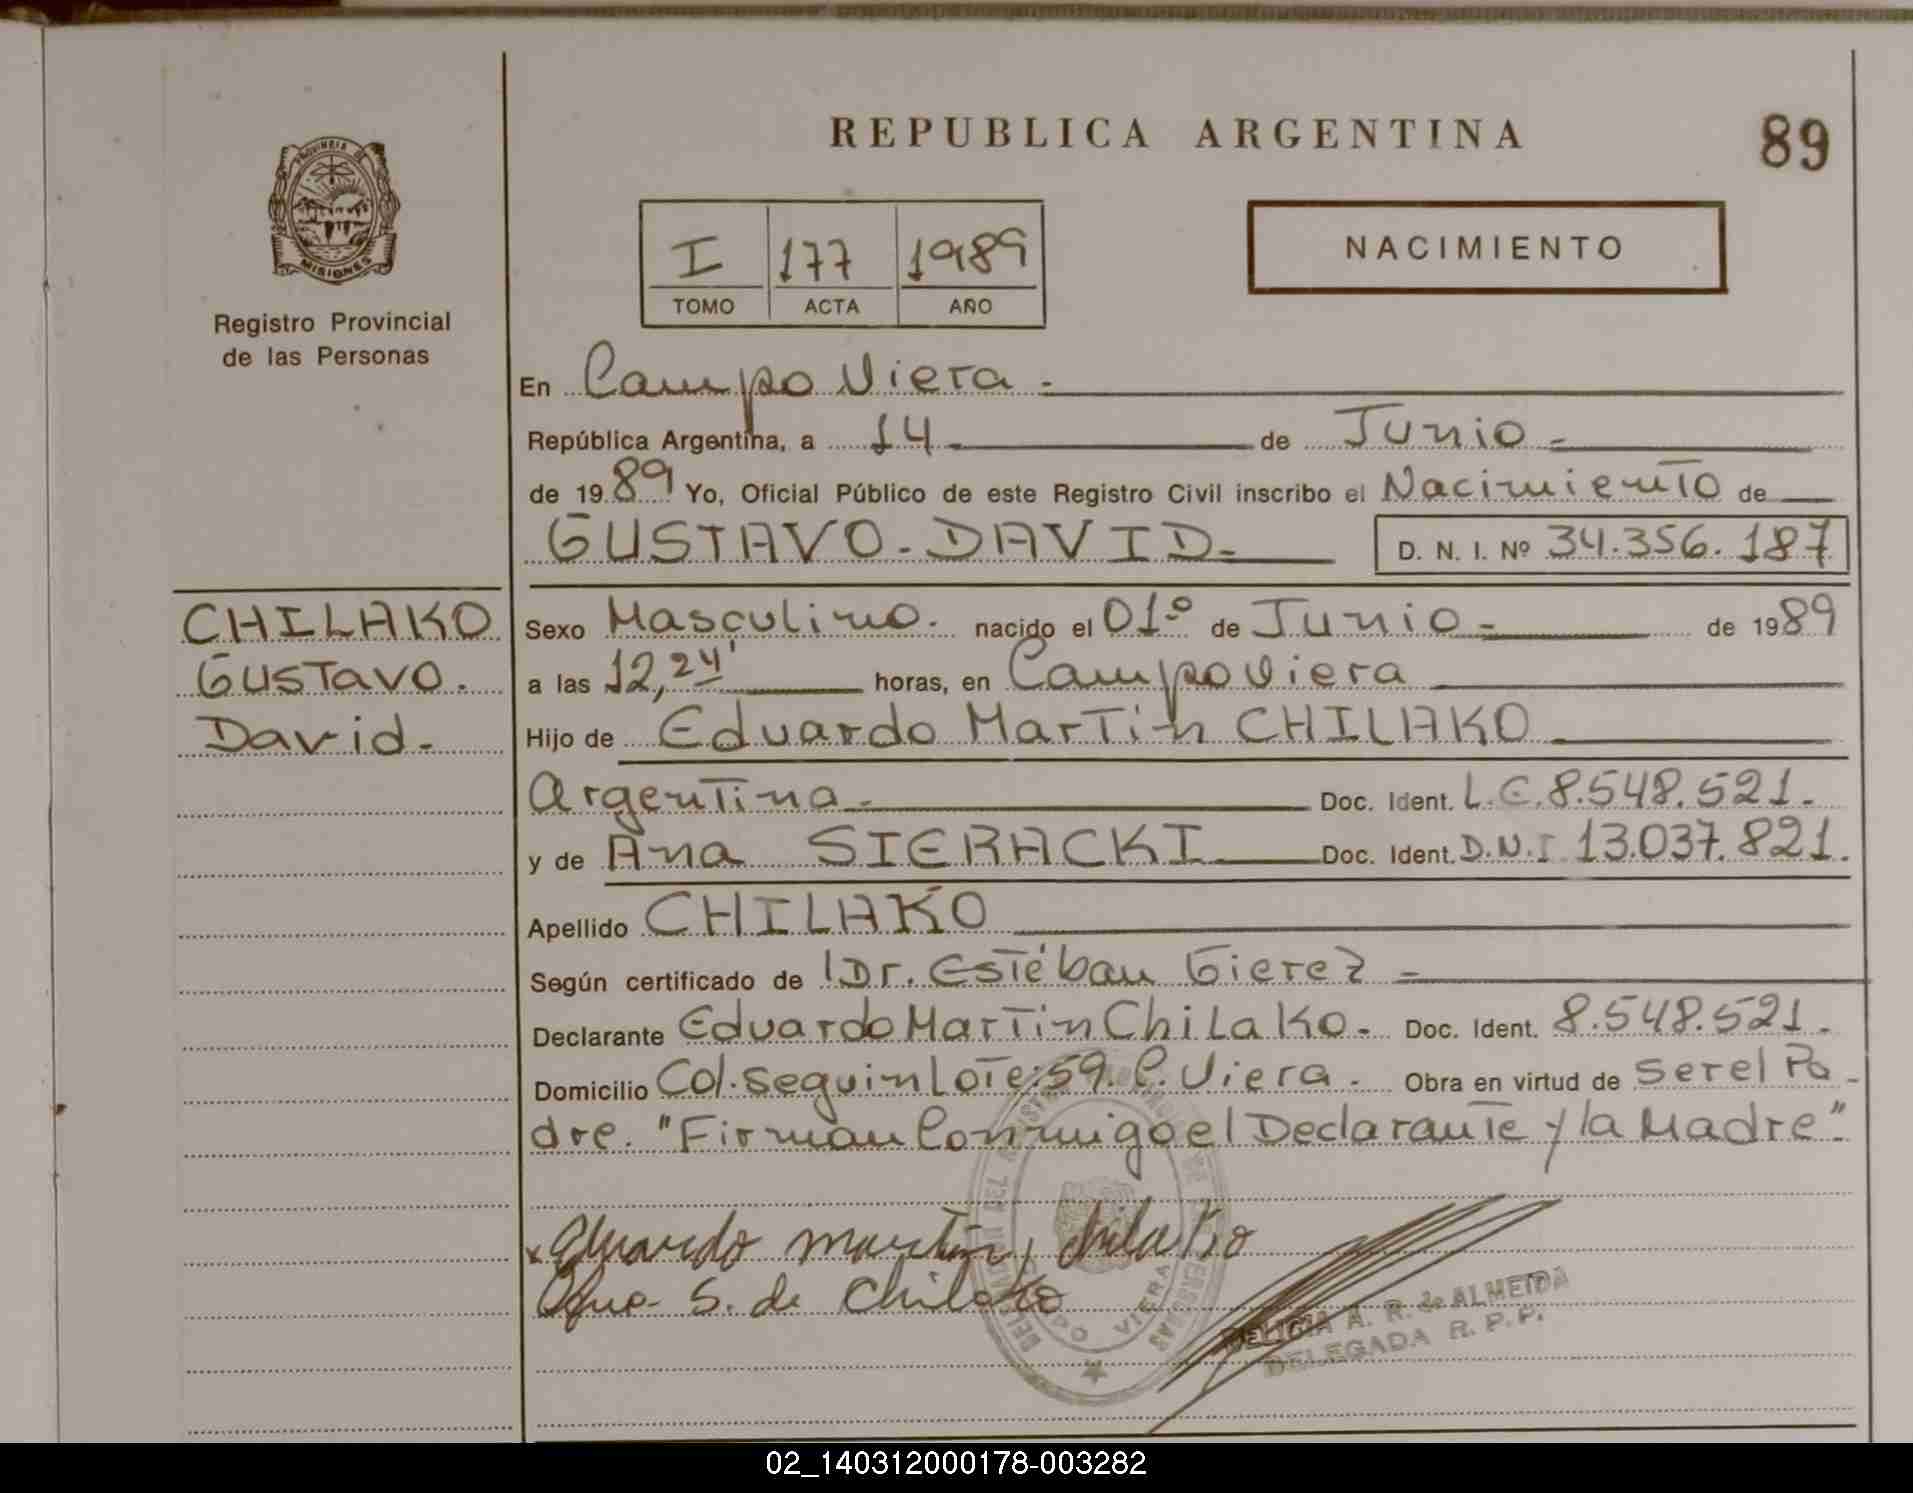 REPUBLICA ARGENTINA
89
PROVINCIA DE
MISIONES
Registro Provincial
de las Personas
I 177 1989
TOMO ACTA AÑO
NACIMIENTO
En Campo Viera.
República Argentina, a 14 de Junio
de 1989 Yo, Oficial Público de este Registro Civil inscribo el Nacimiento de
GUSTAVO DAVID D. N. I. Nº 34.356.187
CHILAKO
Gustavo.
David.
Sexo Masculino. nacido el 01º de Junio de 1989
a las 12,24' horas, en Campo Viera
Hijo de Eduardo Martin CHILAKO
Argentina Doc. Ident. L.E. 8.548.521.
y de Ana SIERACKI Doc. Ident. D.N.I 13.037.821.
Apellido CHILAKO
Según certificado de Dr. Estéban Gierez
Declarante Eduardo Martin Chilako. Doc. Ident. 8.548.521.
Domicilio Col. Seguin Lote: 59. C. Viera. Obra en virtud de ser el Pa
dre. "Firman Conmigo el Declarante y la Madre".
x Eduardo martin chilako
Ana S. de Chilako
VIERA
DELICIA A. R. de ALMEIDA
DELEGADA R. P. P.
02_140312000178-003282